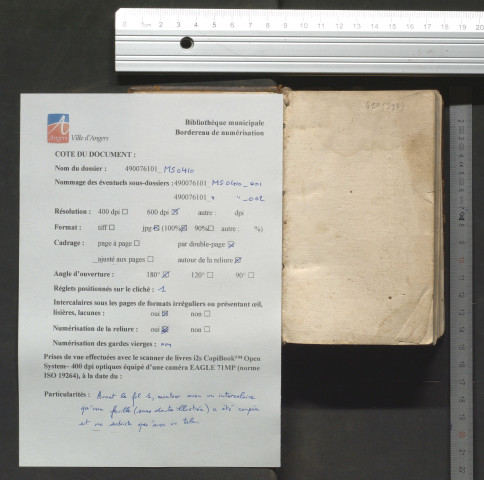 Bibliothèque municipale
Bordereau de numérisation
Angers Ville d'Angers
COTE DU DOCUMENT :
Nom du dossier : 490076101_ MS0410
Nommage des éventuels sous-dossiers : 490076101_ MS0410_001
490076101_ " " _002
Résolution : 400 dpi ☐ 600 dpi ☒ autre : dpi
Format : tiff ☐ jpg ☒ (100% ☒ 90% ☐ autre : %)
Cadrage : page à page ☐ par double-page ☒
ajusté aux pages ☐ autour de la reliure ☒
Angle d'ouverture : 180° ☒ 120° ☐ 90° ☐
Réglets positionnés sur le cliché : 1
Intercalaires sous les pages de formats irréguliers ou présentant œil,
lisières, lacunes : oui ☒ non ☐
Numérisation de la reliure : oui ☒ non ☐
Numérisation des gardes vierges : non
Prises de vue effectuées avec le scanner de livres i2s CopiBook™ Open
System– 400 dpi optiques équipé d'une caméra EAGLE 71MP (norme
ISO 19264), à la date du :
Particularités : Avant le fol 1, montrer avec un intercalaire
qu'une feuille (sans doute illustrée) a été coupée
et ne